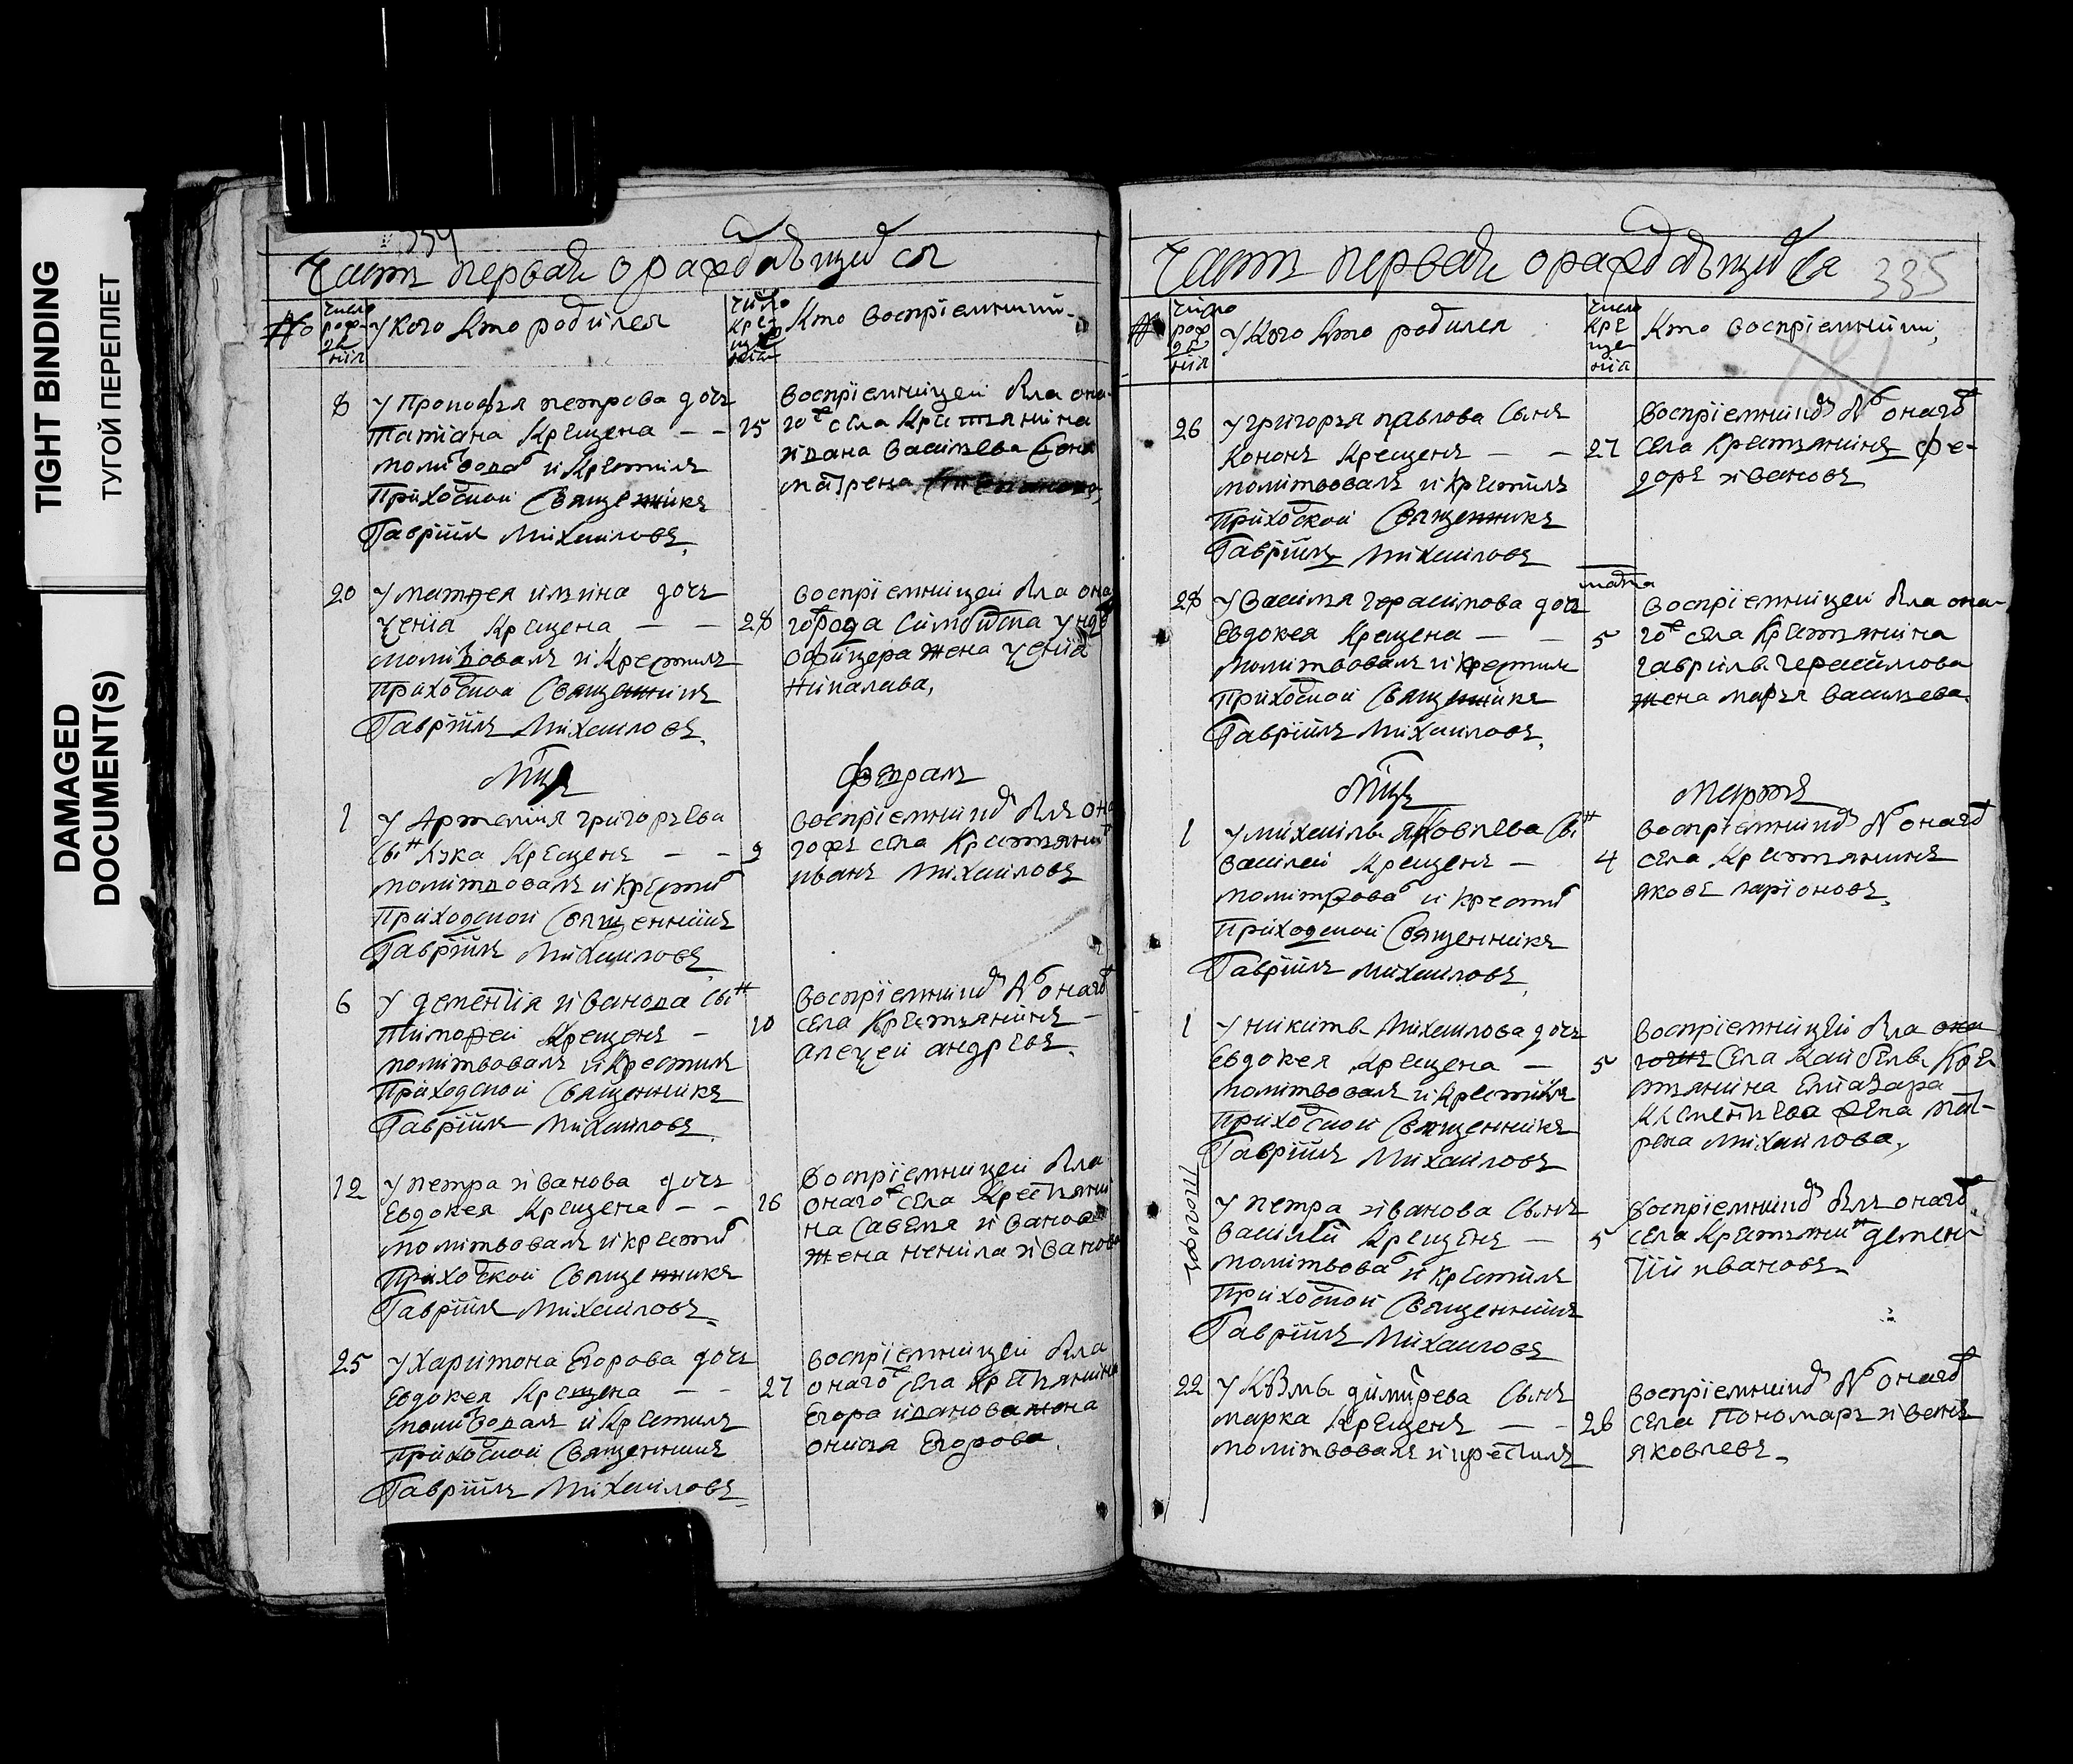 TIGHT BINDING
ТУГОЙ ПЕРЕПЛЕТ
DAMAGED
DOCUMENT(S)
Часть первая о раждающихся
№
число рождения
У кого кто родился
число крещения
Кто восприемники
8 У Прокофья петрова дочь
Татиана Крещена — — 15
молитвовал и крестилъ
Приходской Священникъ
Гаврiилъ Михаиловъ.
восприемницей была она
го села Крестьянина
ивана васильева жена
матрена
20 У матвея ильина дочь
Ксенiа Крещена — — 28
молитвовалъ и Крестилъ
приходской Священникъ
Гаврiилъ Михаиловъ.
восприемницей была она
города Симбирска ундеръ
офицера жена Ксенiа
Мцъ
Февраль
1 У Артемiя григорьева
сынъ Лука Крещенъ — — 9
молитвовалъ и крестил
Приходской Священникъ
Гаврiилъ Михаиловъ.
восприемником былъ она
гожъ села Крестьянин
иванъ Михаиловъ
6 У дементiя иванова сын
Тимофей Крещенъ — 10
молитвовалъ и Крестилъ
Приходской Священникъ
Гаврiилъ Михаиловъ.
восприемником был онаго
села Крестьянинъ —
алексей андреевъ.
12 У петра иванова дочь
Евдокея Крещена — — 16
молитвовалъ и крестил
Приходской Священникъ
Гаврiилъ Михаиловъ.
восприемницей была
онаго села Крестьяни
на Савелья иванова
жена ненила иванова
25 У Харитона Егорова дочь
Евдокея Крещена — — 27
молитвовалъ и Крестилъ
приходской Священникъ
Гаврiилъ Михаиловъ.
восприемницей была
онаго села Крестьянина
Егора иванова жена
Егорова.
Часть первая о раждающихся
335
№
число рождения
У кого кто родился
число крещения
Кто восприемники,
26 У григорья павлова Сынъ
Кононъ Крещенъ — — 27
молитвовалъ и крестилъ
Приходской Священникъ
Гаврiилъ Михаиловъ
восприемником был онаго
села Крестьянинъ фе-
доръ ивановъ
марта
28 У василья герасимова дочь
Евдокея Крещена — — 5
молитвовалъ и крестилъ
приходской Священникъ
Гаврiилъ Михаиловъ.
восприемницей была она-
го села Крестьянина
гаврилы герасимова
жена марья васильева.
Мцъ
Мартъ
1 У михаилы яковлева сын
василей Крещенъ — 4
молитвовал и крестил
приходской Священникъ
Гаврiилъ Михаиловъ.
восприемником был онаго
села Крестьянинъ
яковъ ларiоновъ.
1 У никиты Михаилова дочь
Евдокея Крещена — 5
молитвовалъ и Крестилъ
приходской Священникъ
Гаврiилъ Михаиловъ
восприемницей была она
села Каибелы Кре
стьянина Елиазара
Клементьева жена мат-
рена Михаилова.
У петра иванова Сынъ
василей Крещенъ — 5
молитвовал и Крестилъ
приходской Священникъ
Гаврiилъ Михаиловъ
восприемником былъ онаго
села Крестьянин демен
тiй ивановъ.
22 У Козмы димитрева Сынъ
марка Крещенъ — — 26
молитвовалъ и крестилъ
восприемником был онаго
села Пономарь иванъ
яковлевъ.